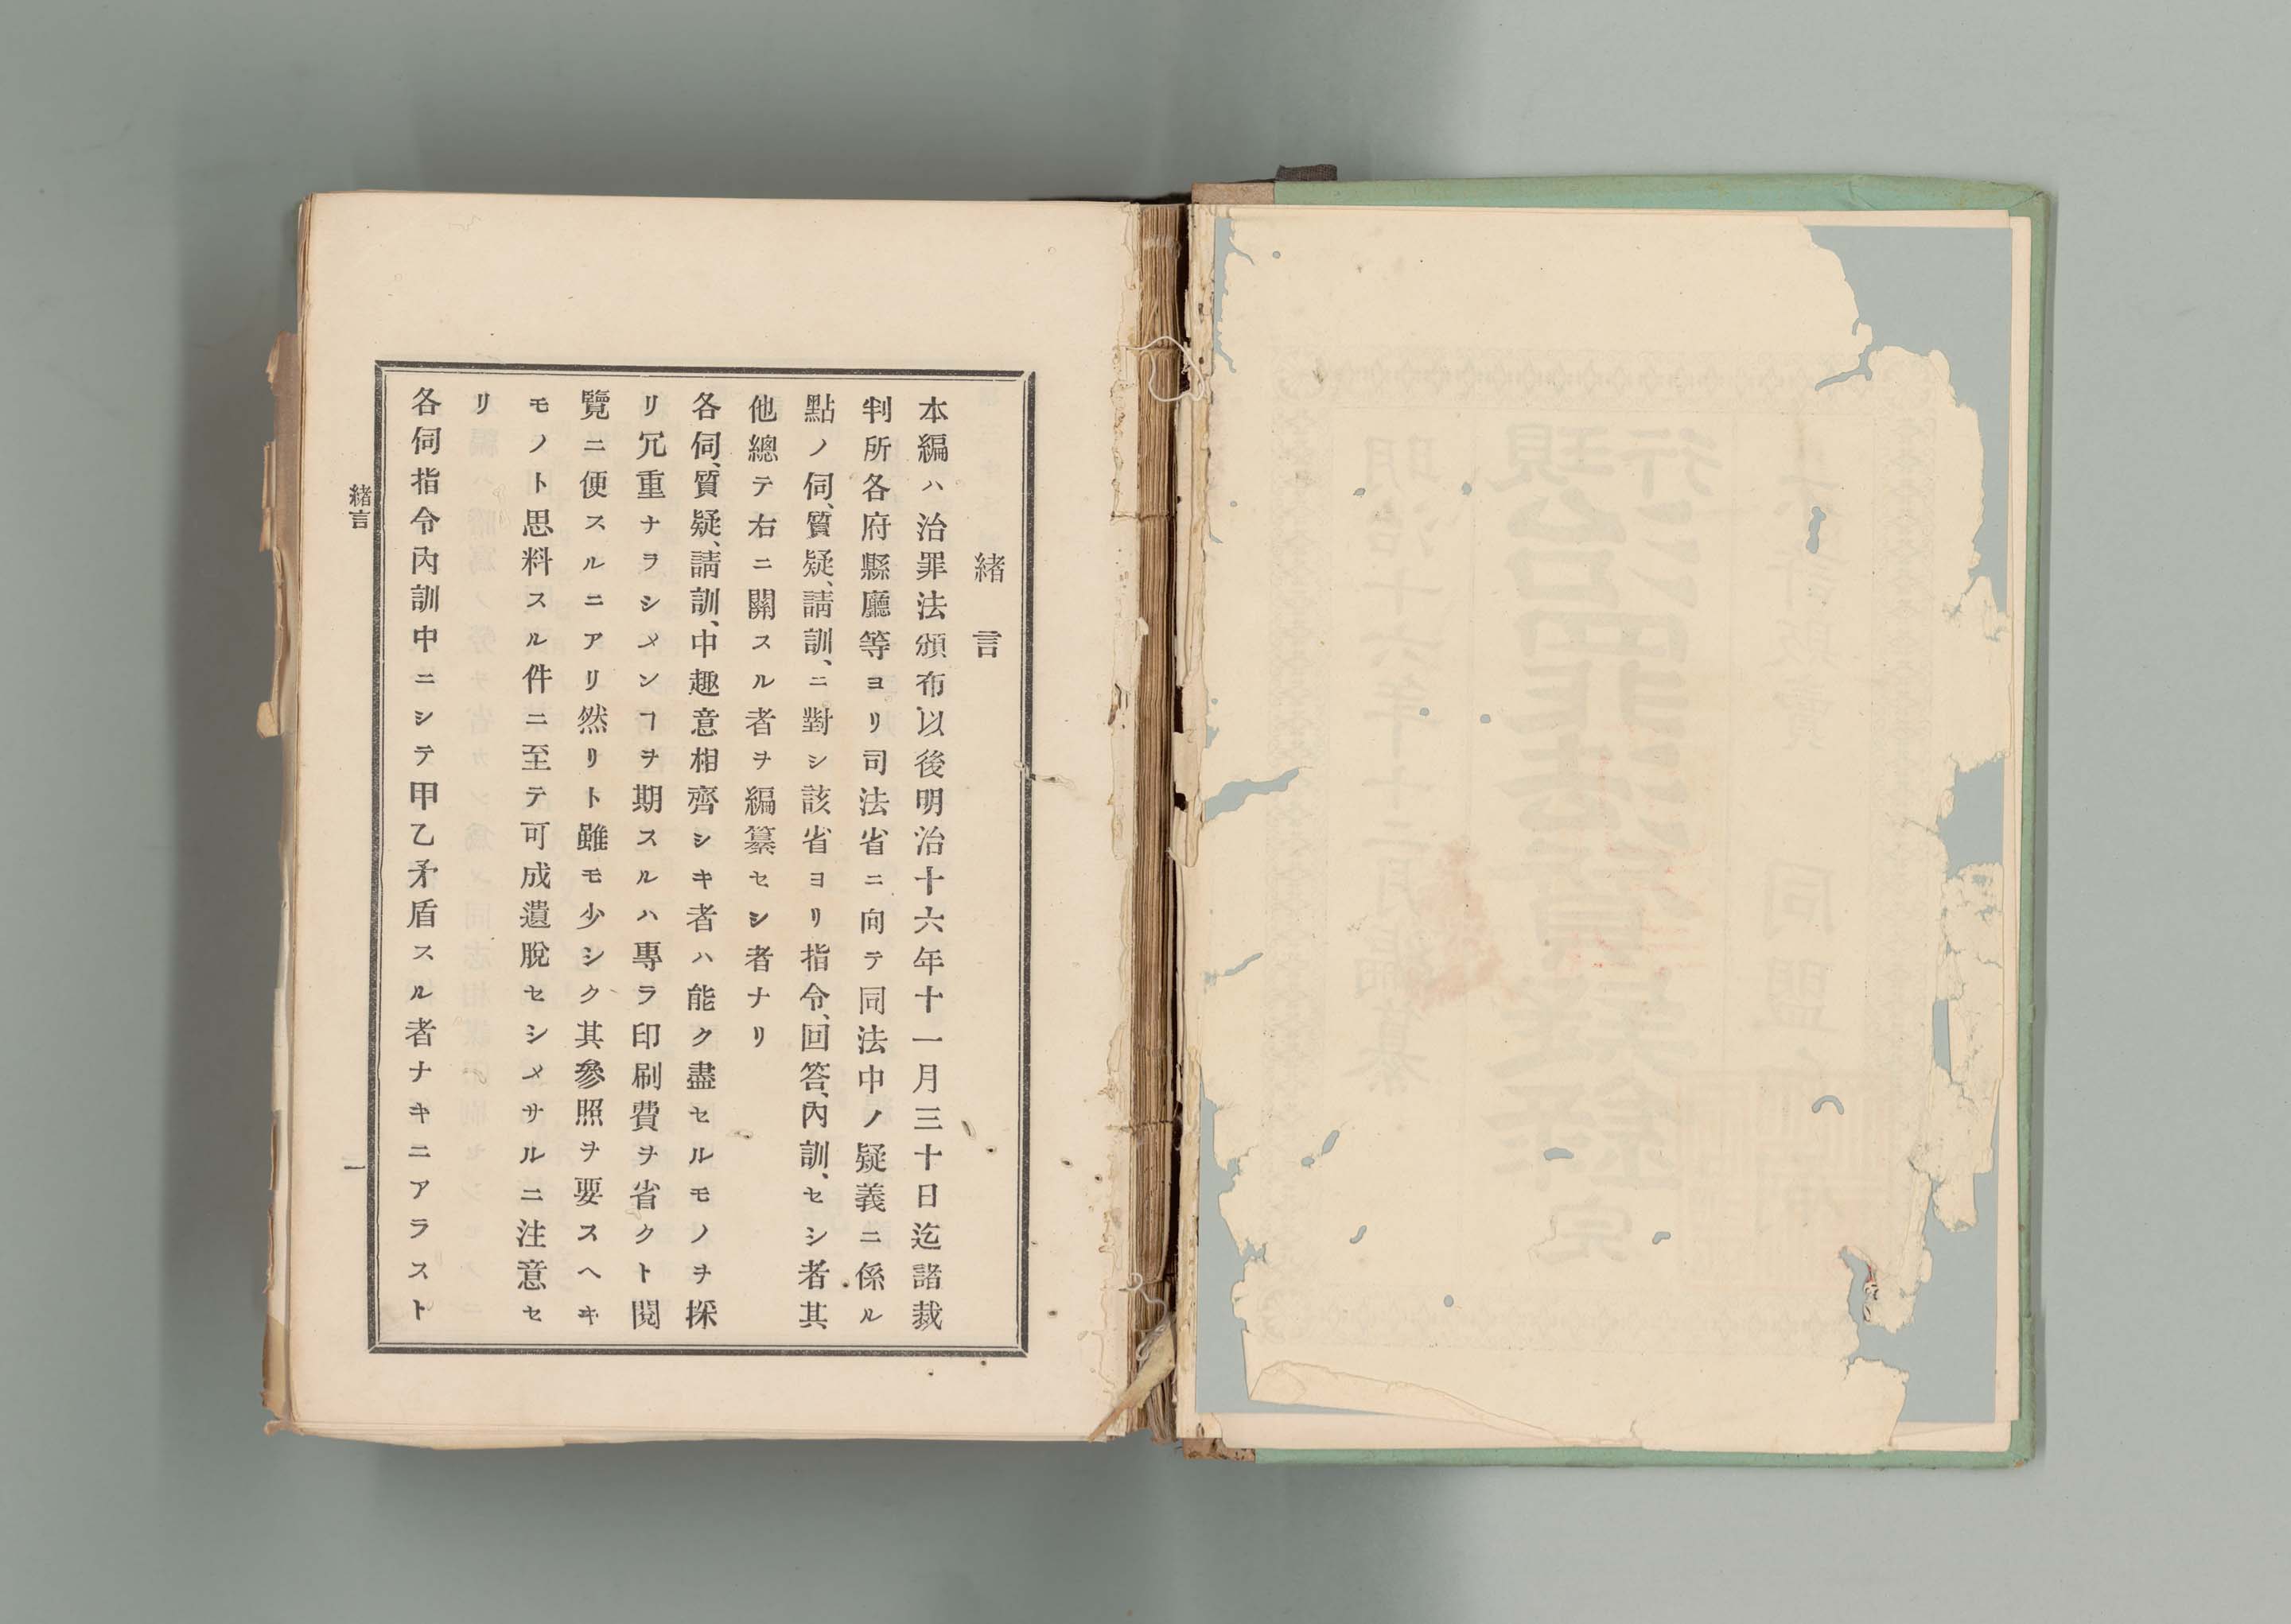 緖言
本編ハ治罪法頒布以後明治十六年十一月三十日迄諸裁
判所各府縣廳等ヨリ司法省ニ向テ同法中ノ疑義ニ係ル
點ノ伺、質疑、請訓、ニ對シ該省ヨリ指令、回答、內訓、セシ者其
他總テ右ニ關スル者ヲ編纂セシ者ナリ
各伺、質疑、請訓、中趣意相齊シキ者ハ能ク盡セルモノヲ採
リ冗重ナヲシメンヿヲ期スルハ專ラ印刷費ヲ省クト閱
覽ニ便スルニアリ然リト雖モ少シク其參照ヲ要スヘキ
モノト思料スル件ニ至テ可成遺脫セシメサルニ注意セ
リ
各伺指令內訓中ニシテ甲乙矛盾スル者ナキニアラスト
緖言
一